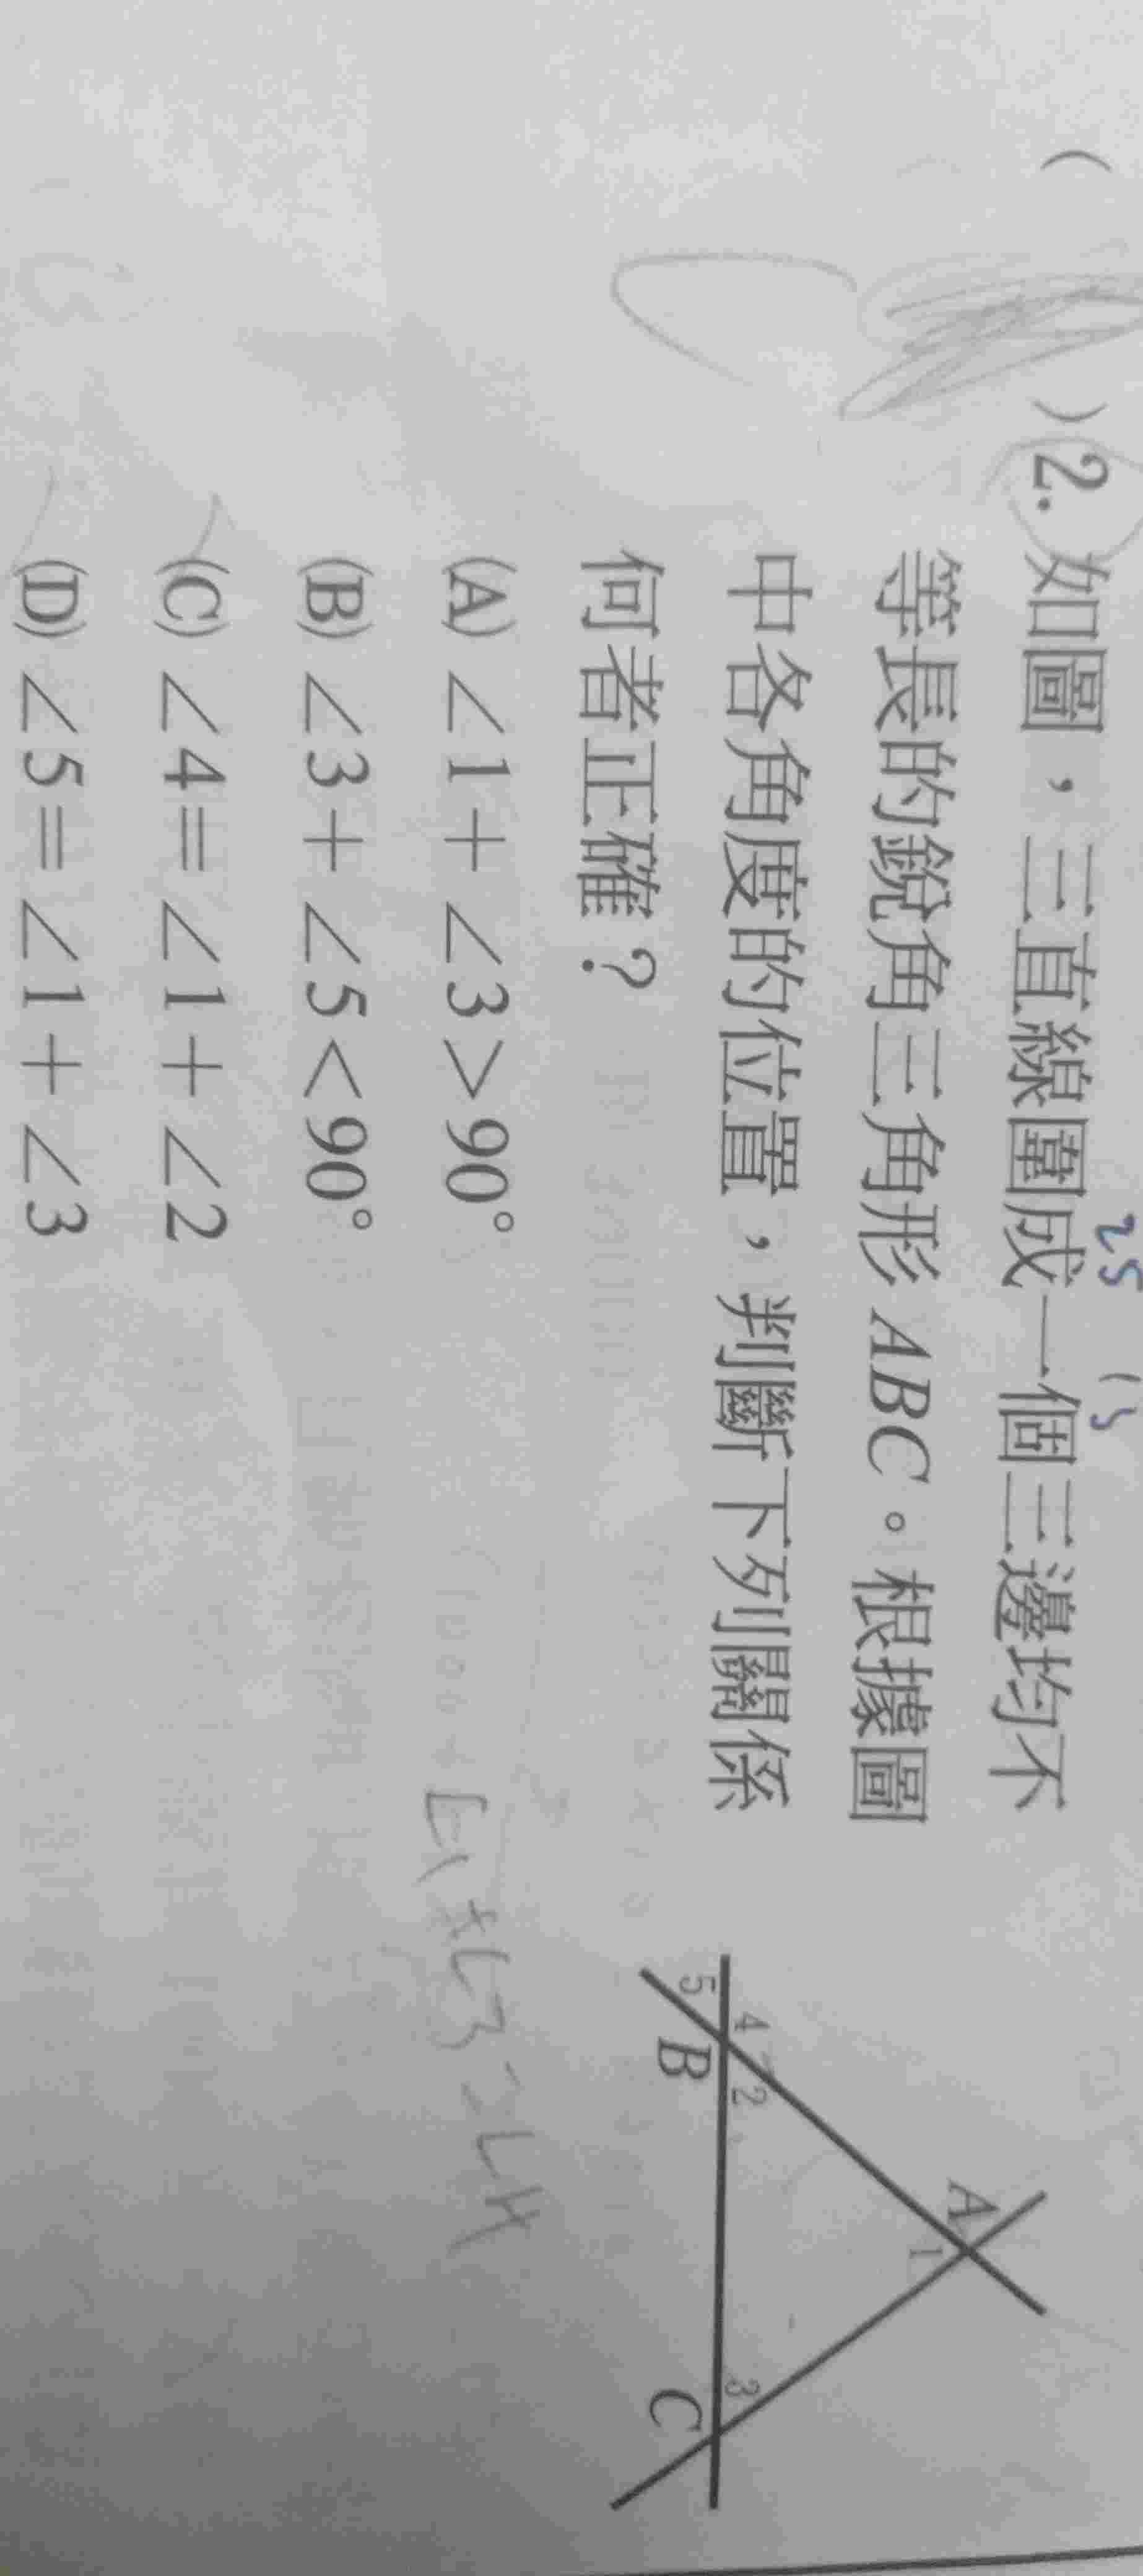 ( )2. 如圖，三直線圍成一個三邊均不
等長的銳角三角形 ABC。根據圖
中各角度的位置，判斷下列關係
何者正確？
(A) ∠1＋∠3＞90°
(B) ∠3＋∠5＜90°
(C) ∠4＝∠1＋∠2
(D) ∠5＝∠1＋∠3
A
1
4
2
3
5
B
C
∠1+∠3=∠4
25